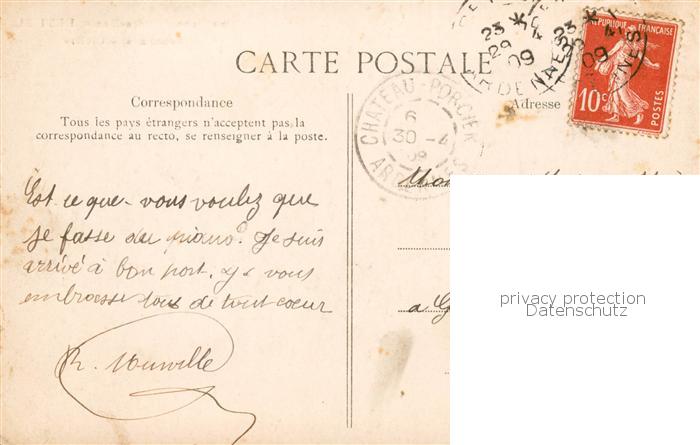 CARTE POSTALE
Correspondance
Tous les pays étrangers n'acceptent pas la
correspondance au recto, se renseigner à la poste.
Adresse
RÉPUBLIQUE FRANÇAISE
10c
POSTES
23 *
29 4
09
ARDENNES
23 *
09
CHATEAU-PORCIEN
6
30 -4
09
ARDENNES
Est ce que vous voulez que
je fasse du piano? Je suis
arrivé à bon port, je vous
embrasse tous de tout coeur
a G
privacy protection
Datenschutz